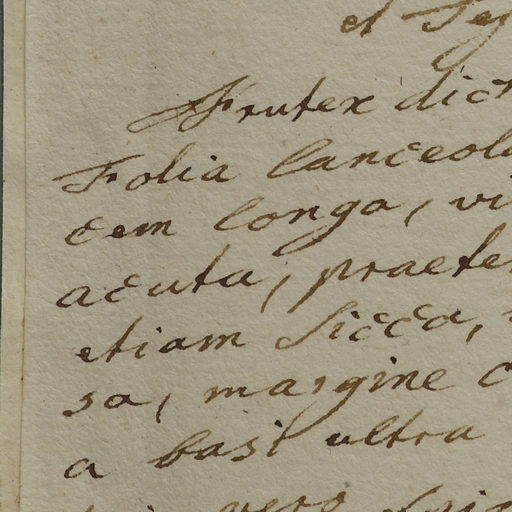 et Sep
Frutex dict
Folia lanceola
cem longa, vi
acuta, praeter
etiam sicca,
sa, margine c
a basi ultra
vero